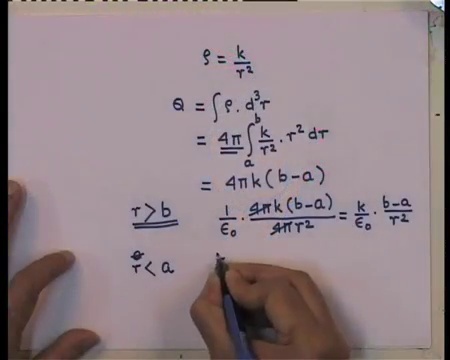 ρ = k/r²
Q = ∫ ρ. d³r
= 4π ∫ₐᵇ k/r² · r² dr
= 4πk (b-a)
r > b    1/ε₀ · 4πk(b-a)/4πr² = k/ε₀ · b-a/r²
r < a